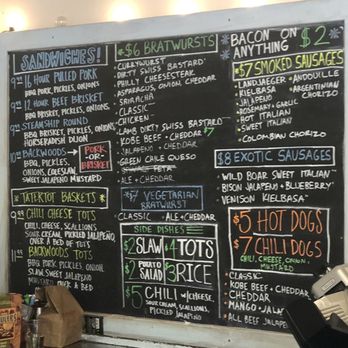 SANDWICHES!
9.00 16 HOUR PULLED PORK
BBQ PORK, PICKLES, ONIONS.
9.00 12 HOUR BEEF BRISKET
BBQ BRISKET, PICKLES, ONIONS.
9.00 STEAMSHIP ROUND
BBQ BRISKET, PICKLES, ONIONS,
HORSERADISH DIJON
10.00 BACKWOODS
BBQ, PICKLES,
ONIONS, COLESLAW,
SWEET JALAPENO MUSTARD
PORK
-OR-
BRISKET
* TATERTOT BASKETS *
9.00 CHILI CHEESE TOTS
CHILI, CHEESE, SCALLIONS
SOUR CREAM, PICKLED JALAPEÑO,
OVER A BED OF TOTS
11.00 BACKWOODS TOTS
BBQ PORK, PICKLES ONION
SLAW, SWEET JALAPENO
MUSTARD OVER A
BED OF TOTS
$6 BRATWURSTS
CURRYWURST
DIRTY SWISS BASTARD
PHILLY CHEESESTEAK
ASPARAGUS, ONION, CHEDDAR
SRIRACHA
CLASSIC
CHICKEN
LAMB DIRTY SWISS BASTARD
KOBE BEEF • CHEDDAR $7
JALAPENO
GREEN CHILE QUESO
ALE + CHEDDAR
$7 VEGETARIAN
BRATWURST
CLASSIC • ALE + CHEDDAR
SIDE DISHES
$2 SLAW
$4 TOTS
$2 POTATO
SALAD
$3 RICE
$5 CHILI W/ CHEESE,
SOUR CREAM, SCALLIONS,
PICKLED JALAPENO
* BACON ON
ANYTHING $2 *
$7 SMOKED SAUSAGES
LANDJAEGER • ANDOUILLE
KIELBASA
JALAPENO
• ARGENTINIAN
CHORIZO
ROSEMARY + GARLIC
HOT ITALIAN
SWEET ITALIAN
• COLOMBIAN CHORIZO
$8 EXOTIC SAUSAGES
WILD BOAR SWEET ITALIAN
BISON JALAPENO + BLUEBERRY
VENISON KIELBASA
$5 HOT DOGS
$7 CHILI DOGS
CHILI, CHEESE, ONION,
MUSTARD
CLASSIC
KOBE BEEF • CHEDDAR
CHEDDAR
MANGO • JALAPENO
ALL BEEF JALA